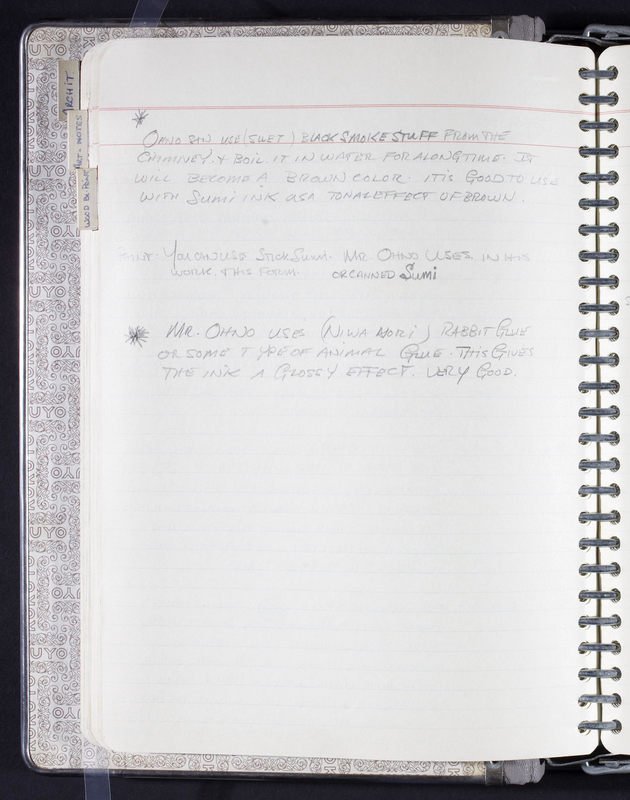 ARCHIT
NOTES
WOOD BL PRINT
OHNO SAN USE (SUET) BLACK SMOKE STUFF FROM THE
CHIMNEY, & BOIL IT IN WATER FOR A LONG TIME. IT
WILL BECOME A BROWN COLOR. IT IS GOOD TO USE
WITH SUMI INK AS A TONAL EFFECT OF BROWN.
YOU CAN USE STICK SUMI. MR OHNO USES IN HIS
WORK, & THIS FORUM. OR CANNED SUMI
MR. OHNO USE (NIWA NORI) RABBIT GLUE
OR SOME TYPE OF ANIMAL GLUE. THIS GIVES
THE INK A GLOSSY EFFECT. VERY GOOD.